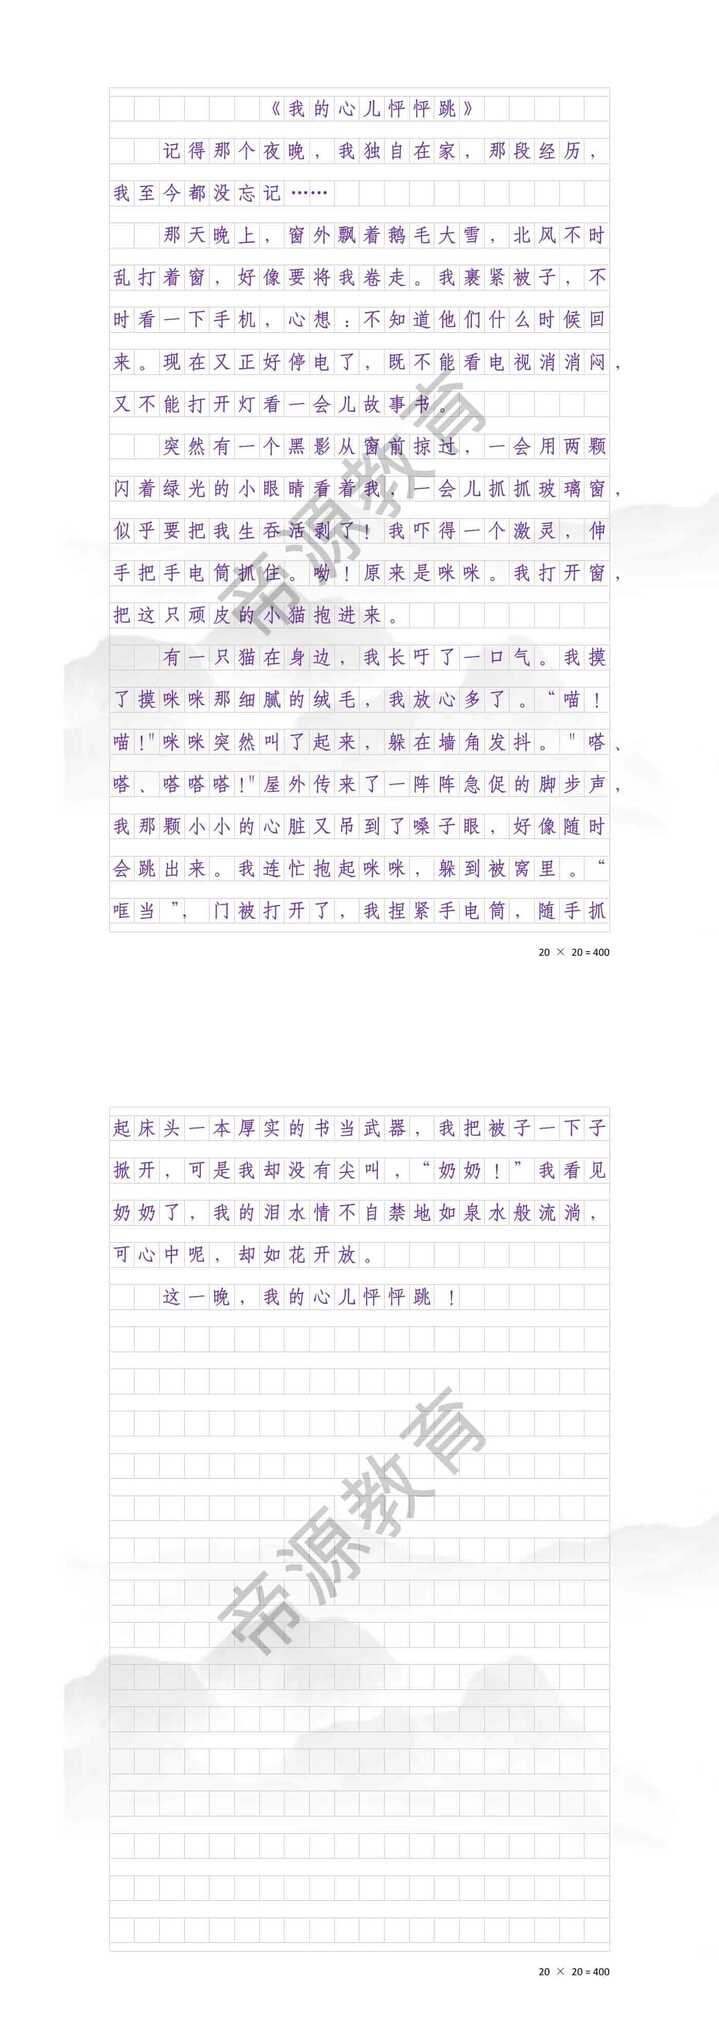 《我的心儿怦怦跳》
记得那个夜晚，我独自在家，那段经历，
我至今都没忘记……
那天晚上，窗外飘着鹅毛大雪，北风不时
乱打着窗，好像要将我卷走。我裹紧被子，不
时看一下手机，心想：不知道他们什么时候回
来。现在又正好停电了，既不能看电视消消闷，
又不能打开灯看一会儿故事书。
突然有一个黑影从窗前掠过，一会用两颗
闪着绿光的小眼睛看着我，一会儿抓抓玻璃窗，
似乎要把我生吞活剥了！我吓得一个激灵，伸
手把手电筒抓住。呦！原来是咪咪。我打开窗，
把这只顽皮的小猫抱进来。
有一只猫在身边，我长吁了一口气。我摸
了摸咪咪那细腻的绒毛，我放心多了。“喵！
喵!"咪咪突然叫了起来，躲在墙角发抖。"嗒、
嗒、嗒嗒嗒!"屋外传来了一阵阵急促的脚步声，
我那颗小小的心脏又吊到了嗓子眼，好像随时
会跳出来。我连忙抱起咪咪，躲到被窝里。“
哐当”，门被打开了，我捏紧手电筒，随手抓
20 × 20 = 400
起床头一本厚实的书当武器，我把被子一下子
掀开，可是我却没有尖叫，“奶奶！”我看见
奶奶了，我的泪水情不自禁地如泉水般流淌，
可心中呢，却如花开放。
这一晚，我的心儿怦怦跳！
20 × 20 = 400
帝源教育
帝源教育